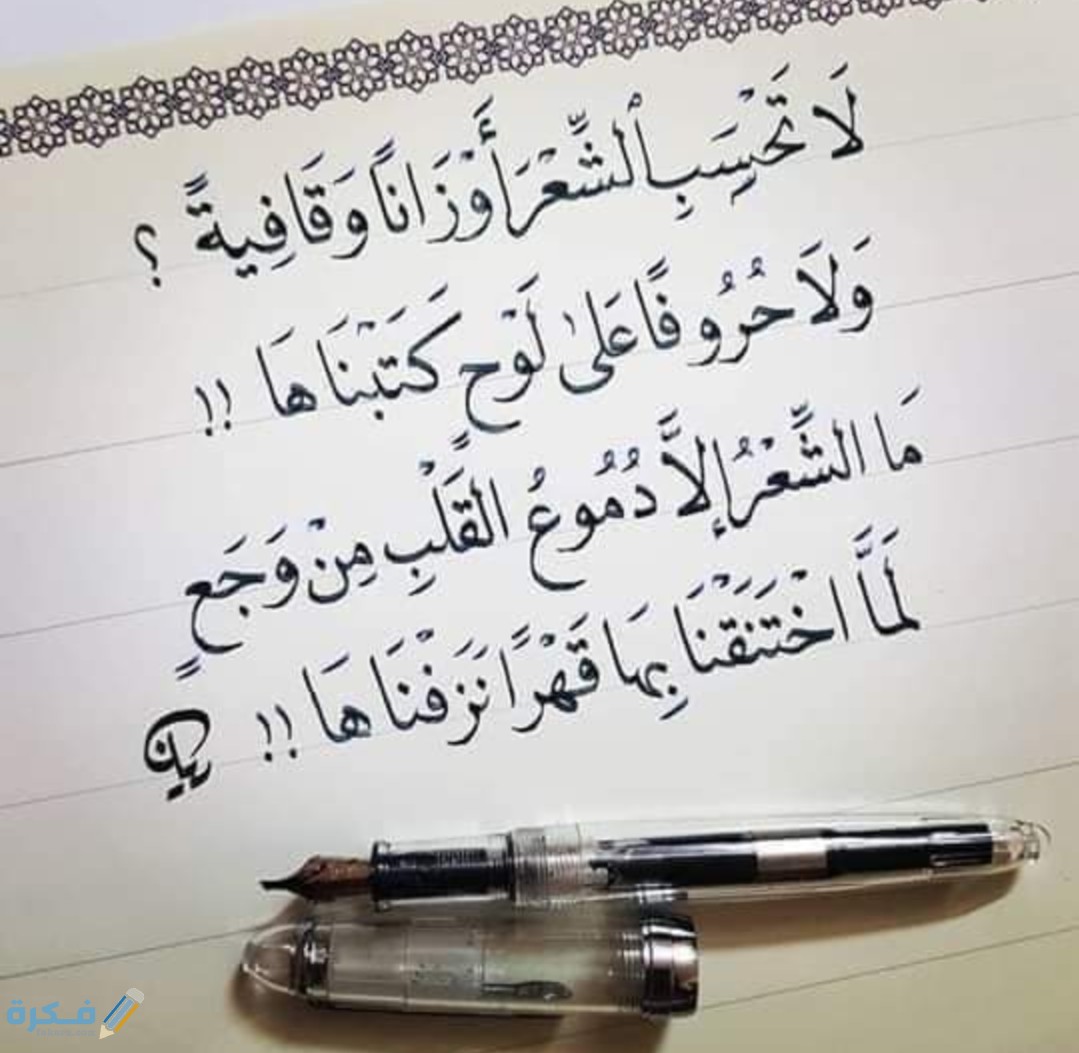 لَا تَحْسَبِ ٱلشِّعْرَ أَوْزَاناً وَقَافِيةً ؟
وَلاَ حُرُوفًا عَلىٰ لَوْحٍ كَتَبْنَاهَا !!
مَا الشِّعْرُ إلاَّ دُمُوعُ القَلْبِ مِنْ وَجَعٍ
لَمَّا اخْتَنَقْنَا بِهَا قَهْرًا نَزَفْنَاهَا !!
فـكـرة